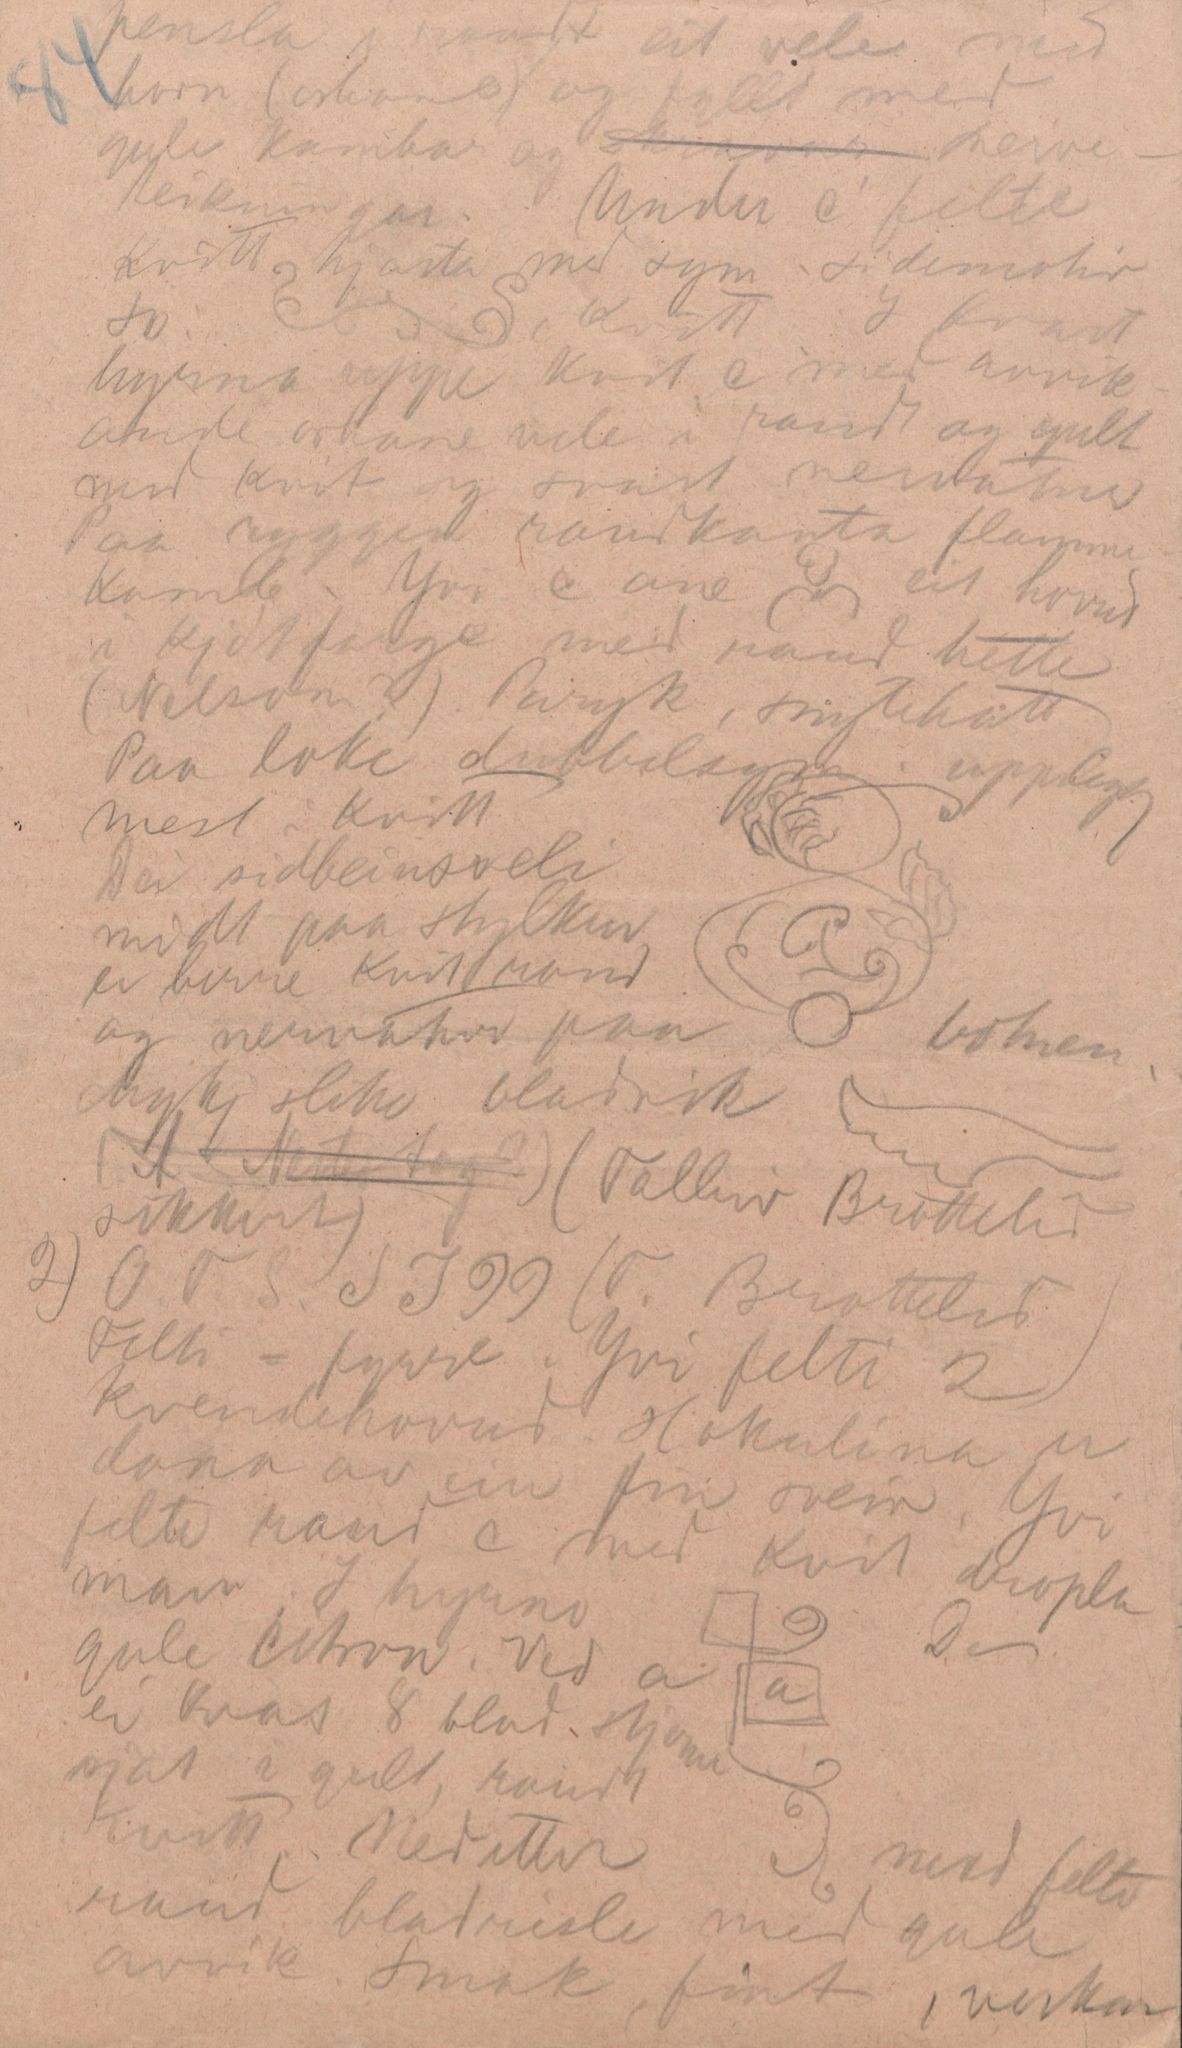 84
pensla, raudt eit vele med
horn (askane) og fyllt med
gule kambar og nerve-
teikningar. Under c' felte
kvitt hjarta med sym. sidemotiv
so: kvitt I kvart
hyrna uppe kvit c med avvik-
ande askane vele i raudt og gult
med kvit og svart nervatur
Paa ryggen raudkanta flamme-
kamb. Yvi c ane eit hovud
i kjøtfarge med raud hette
(Nelson?). Paryk, snytehatt
Paa loke dubbelsym. upplegg
mest i kvitt
Dei sidbeinsveli
midt paa stylken
er berre kvit rand
og nervatur paa botnen.
Mykj slike bladvik
(Talleiv Brottelid
sikkert)
2) O. T. S. S I 99 (T. Brottelid)
Felti = fyrre. Yvi felti 2
kvendehovud. Hokulina er
dana av ein fin sveiv. Yvi
felte raud c med kvit dropla
mann. I hyrno
gule citron. Ved a Der
a
ei kvas 8 blad stjerne
sjat i gult, raudt
kvitt. Nedetter med felte
raud bladrisle med gule
avvik. Smak, fint, verkar